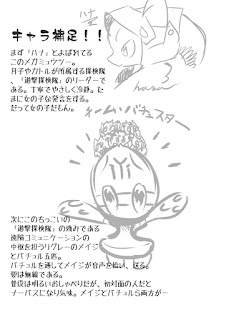 キャラ補足！！
まず「ハナ」とよばれてる
このメガミュウツー。
月子やカトルが所属する探検隊、
「進撃探検隊」のリーダーで
ある。丁寧でやさしく冷静。た
まに女の子な発言をする。
だって女の子だもん。
hana
チーム・バチュスター
次にこのちっこいの
「進撃探検隊」の強みである
遠隔コミュニケーションの
中枢を担うリグレーのメイジ
とバチュル５匹。
バチュルを通してメイジが音声を拾い、送る。
要は無線である。
普段は明るいおしゃべりだが、初対面の人だと
ナーバスになり気味。メイジとバチュル５両方が…